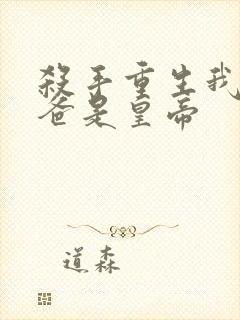 殺手重生我
爸是皇帝
道森